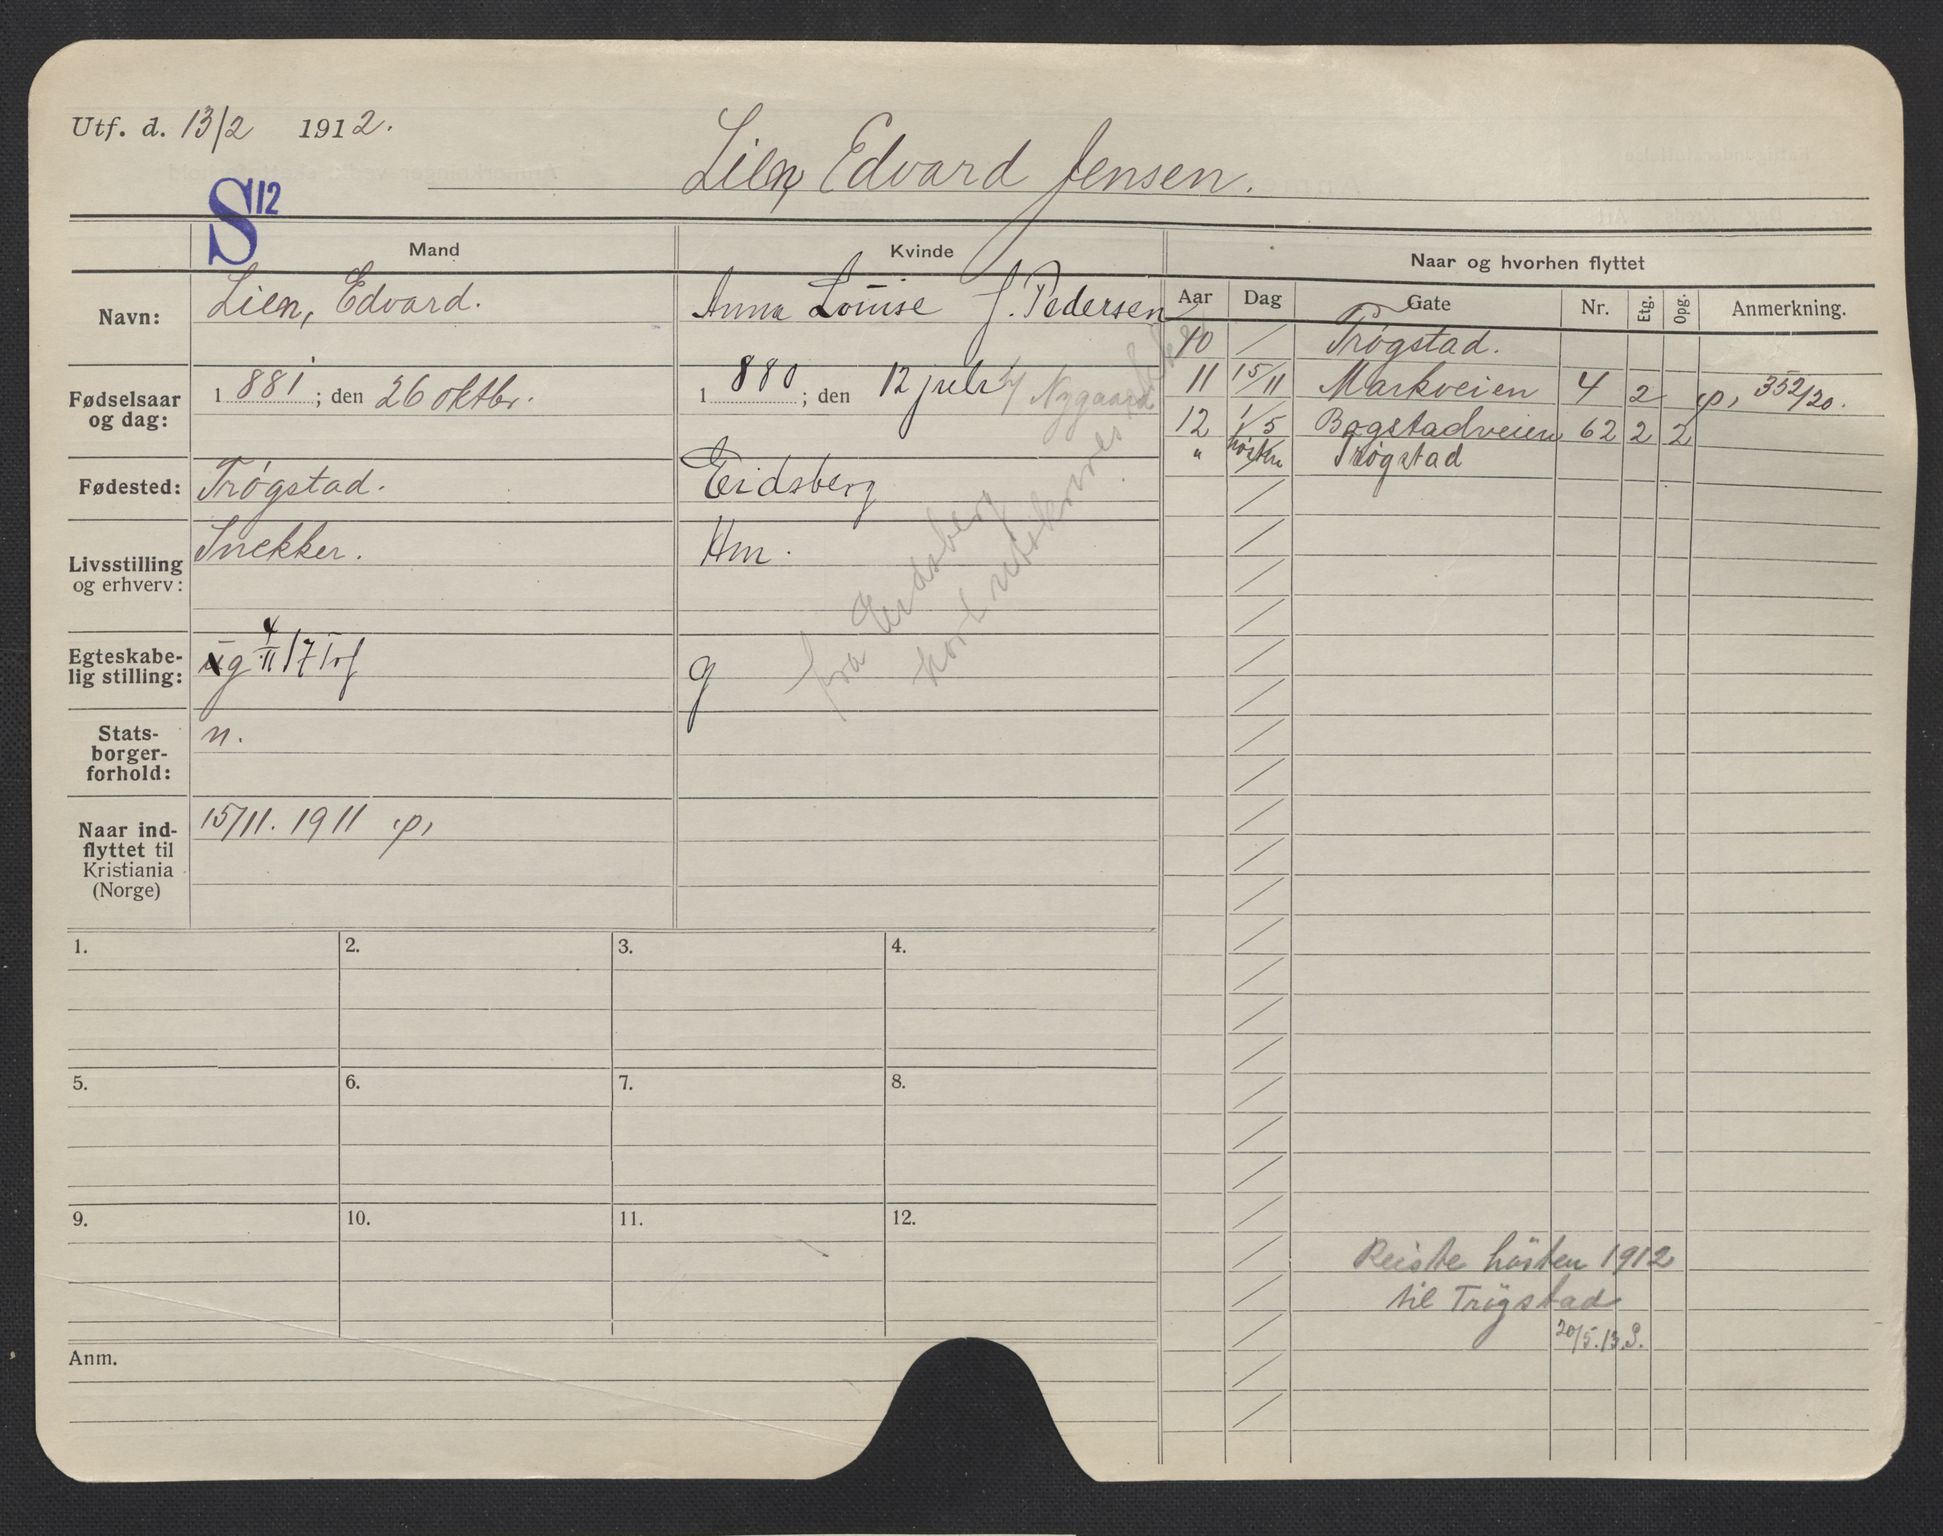 Utf. d. 13/2 1912.
Lien, Edvard Jensen.
S 12
Mand
Kvinde
Naar og hvorhen flyttet
Navn:
Lien, Edvard.
Anna Louise f. Pedersen
Aar
Dag
Gate
Nr.
Etg.
Opg.
Anmerkning.
10 / Trøgstad.
11 15/11 Markveien 4 2 p, 352/20.
12 1/5 Bogstadveien 62 2 2
" høsten Trøgstad
Fødselsaar
og dag:
1881; den 26 oktbr.
1880; den 12 juli
Nygaard
Fødested:
Trøgstad.
Eidsberg
Livsstilling
og erhverv:
Snekker.
Hm.
fra Eidsberg
Egteskabe-
lig stilling:
ug 4/11 17
g
Stats-
borger-
forhold:
n.
Naar ind-
flyttet til
Kristiania
(Norge)
15/11. 1911 p,
1.
2.
3.
4.
5.
6.
7.
8.
9.
10.
11.
12.
Reiste høsten 1912
til Trøgstad
20/5.13.
Anm.